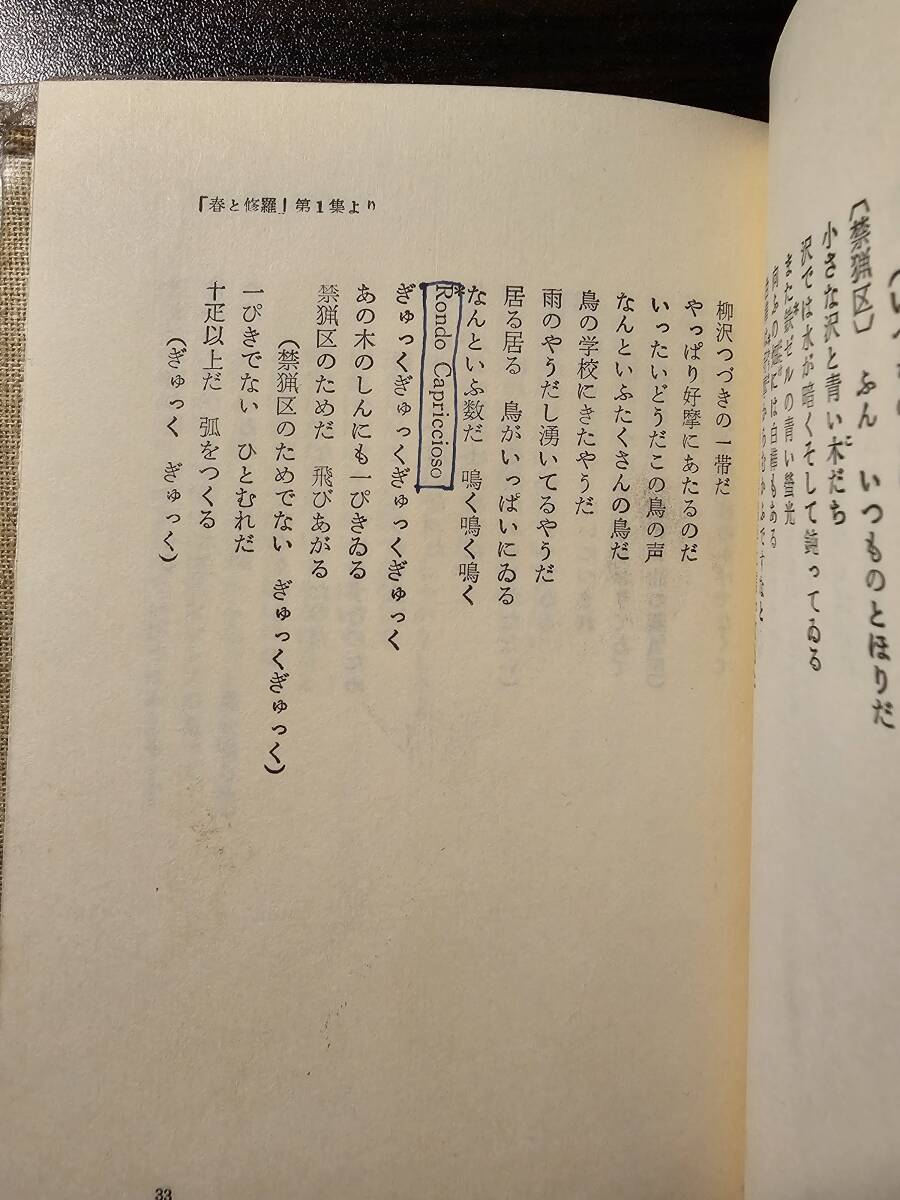 〔禁猟区〕 ふん いつものとほりだ
小さな沢と青い木だち
沢では水が暗くそして鈍ってゐる
また鉄ゼルの青い蛍光
向ふの
には白樺もある
「春と修羅」第1集より
柳沢つづきの一帯だ
やっぱり好摩にあたるのだ
いったいどうだこの鳥の声
なんといふたくさんの鳥だ
鳥の学校にきたやうだ
雨のやうだし湧いてるやうだ
居る居る 鳥がいっぱいにゐる
なんといふ数だ 鳴く鳴く鳴く
*Rondo Capriccioso
ぎゅっくぎゅっくぎゅっくぎゅっく
あの木のしんにも一ぴきゐる
禁猟区のためだ 飛びあがる
(禁猟区のためでない ぎゅっくぎゅっく)
一ぴきでない ひとむれだ
十疋以上だ 弧をつくる
(ぎゅっく ぎゅっく)
33